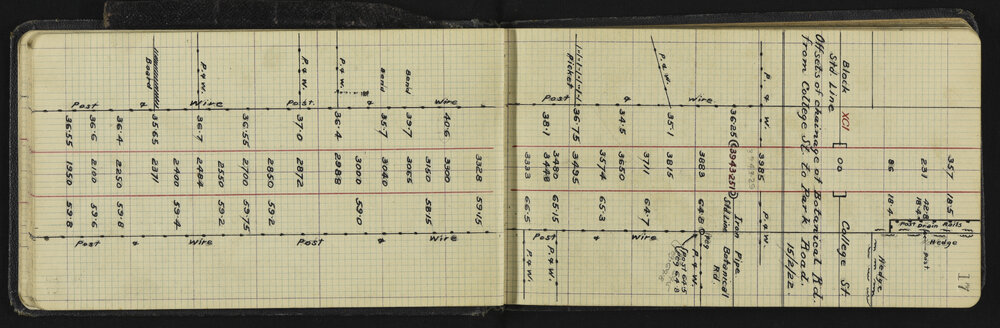 17
Block XCI
Std. Line [ 00 ] College St
Offsets & chainage of Botanical Rd.
from College St. to Park Road.
15/2/22.
357 18.5
Post Drain Rails
Hedge
231 42.8
18.4
Post.
86 18.4
Hedge
P. & W. 3985 P. & W.
3944.25
36.25 (3943.251) Iron Pipe
Std Line Botanical
Rd.
3883 64.8 Peg
P. & W.
Post & Wire
Post 64.5
Peg 64.8
P. & W. 35.1 3815
3711 64.7
34.5 3650
3574 65.3
Picket 36.75 3495
3480
38.1 3448 65.15
3333 66.5
P. & W.
P. & W.
Post & Wire
3328 59.15
40.6 3300
3150 58.15
Bond 39.7 3065
Bond 35.7 3040
3000 59.0
P. & W. 36.4 2988
P. & W. 37.0 2872
2850 59.2
36.55 2700 59.75
2550 59.2
P. & W. 36.7 2484
2400 59.4
Board 35.65 2371
36.4 2250 59.8
36.6 2100 59.6
36.55 1950 59.8
Post & Wire Post. & Wire
Post & Wire Post & Wire